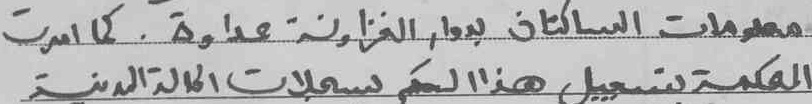 معلومات الساكنان بدوار الغزاونة عداوة. كما امرت
المحكمة بتسجيل هذا الحكم بسجلات الحالة المدنية